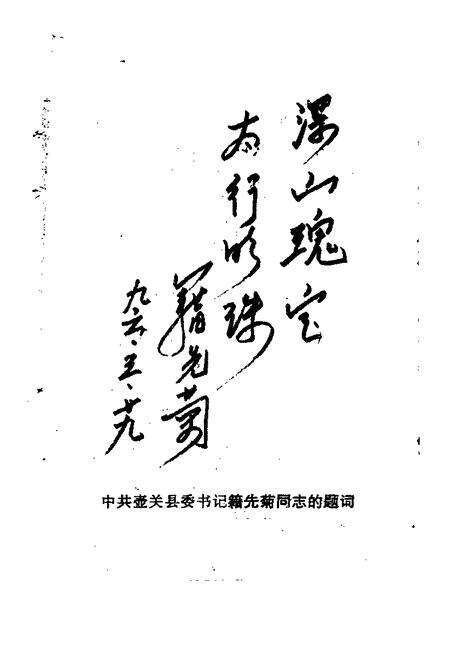 深山瑰宝
太行明珠
籍先菊
九六·五·廿九
中共壶关县委书记籍先菊同志的题词